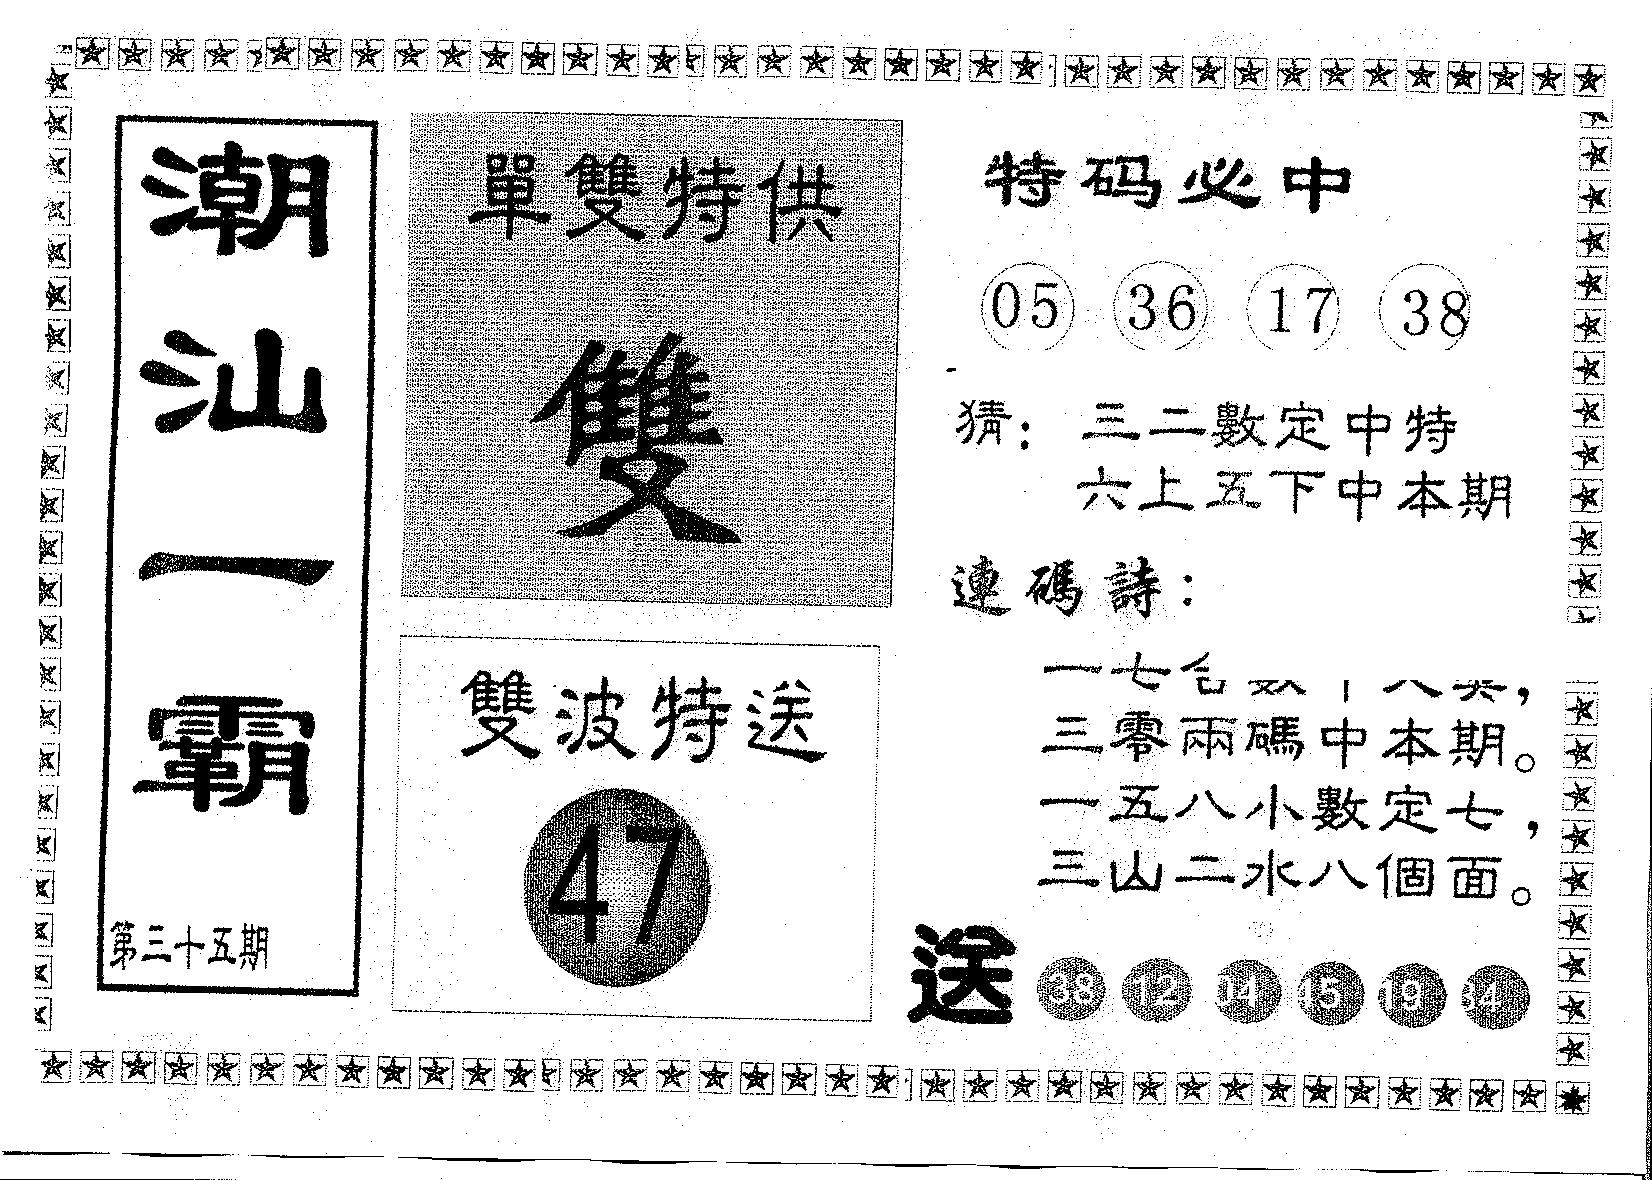 潮汕一霸
第三十五期
單雙特供
雙
雙波特送
47
特码必中
05 36 17 38
猜：三二數定中特
六上五下中本期
連碼詩：
一七合數十八
三零兩碼中本期。
一五八小數定七，
三山二水八個面。
送 38 12 04 15 19 34